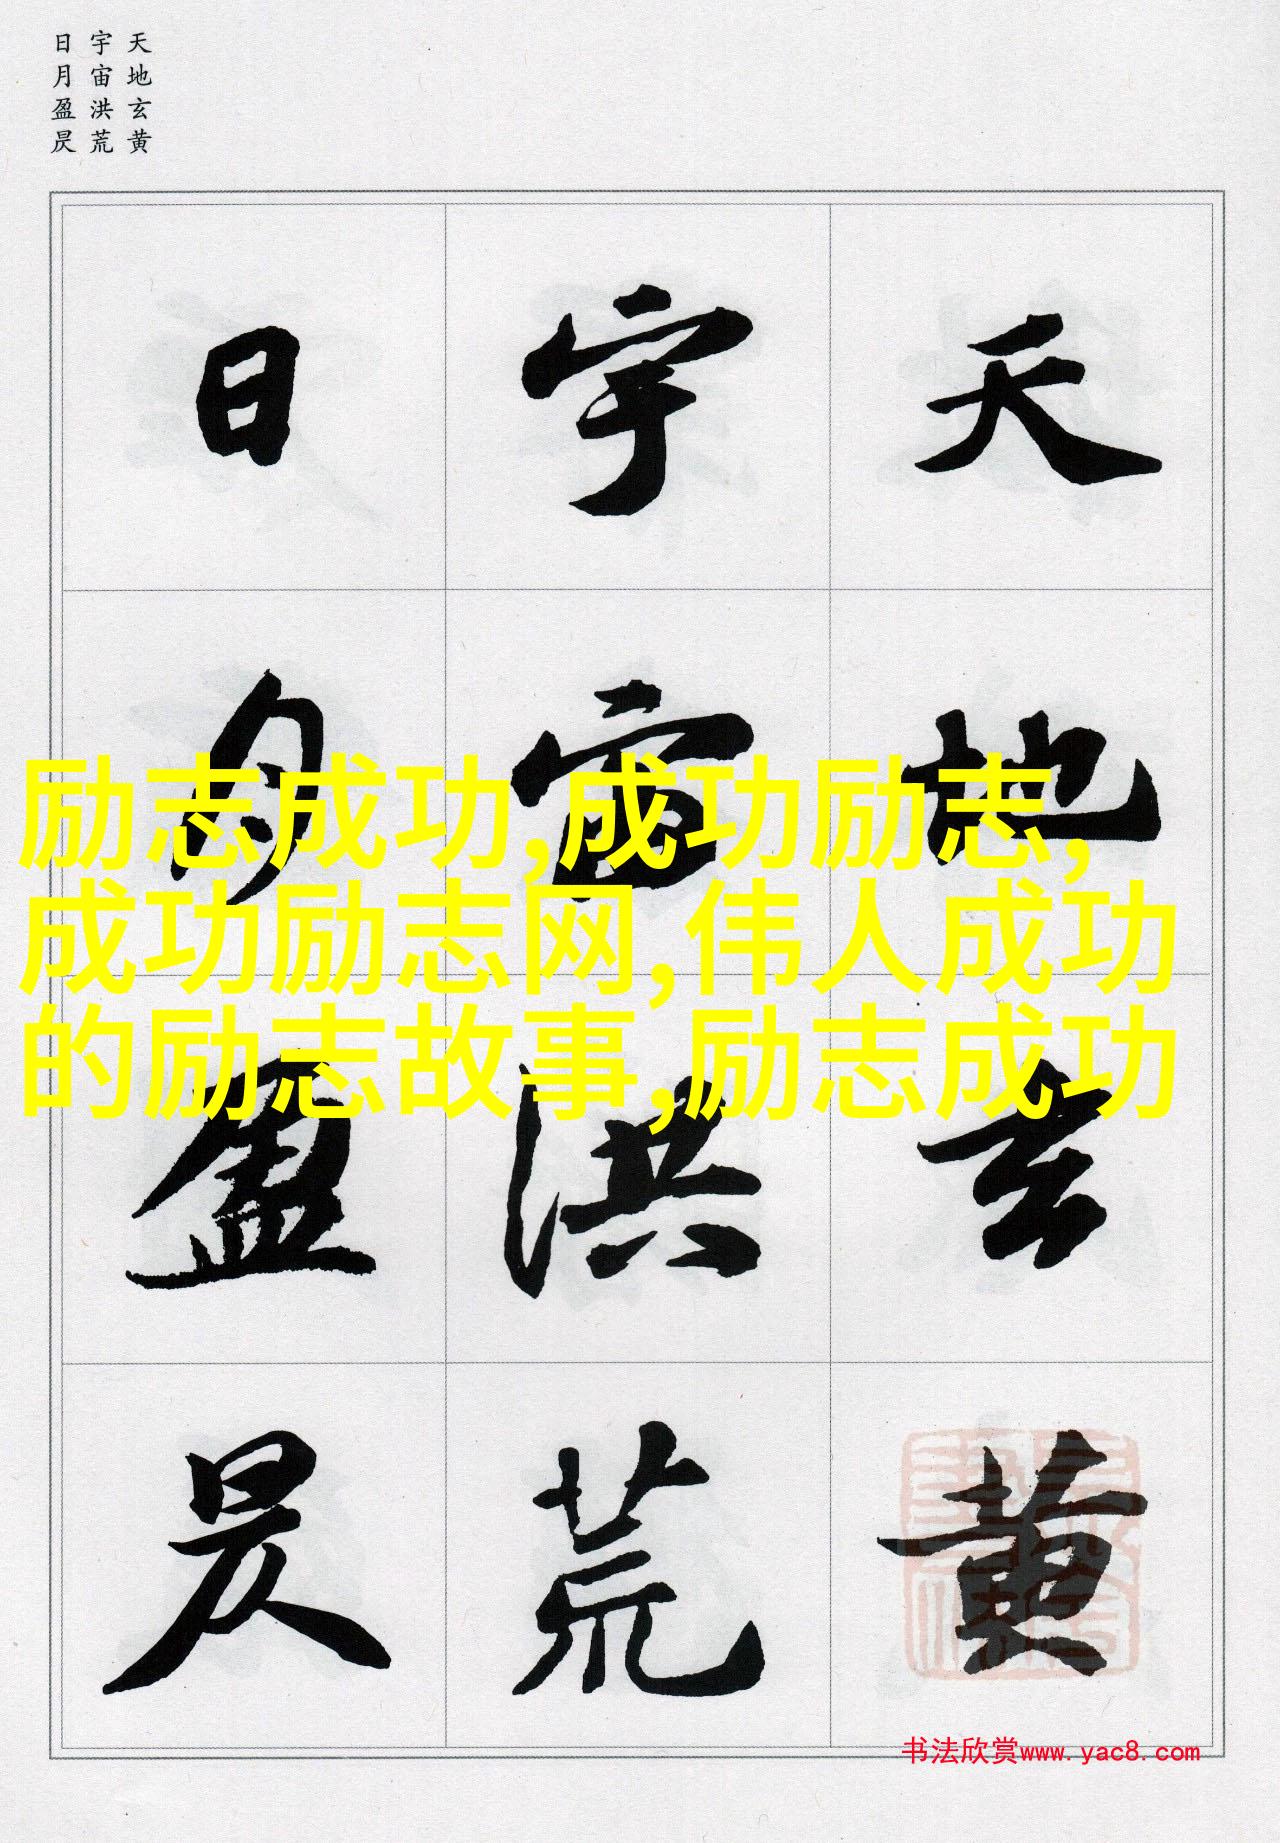 天地玄黄
宇宙洪荒
日月盈昃
天地玄黄
宇宙洪荒
日月盈昃
励志成功,成功励志,
成功励志网,伟人成功
的励志故事,励志成功
书法欣赏www.yac8.com